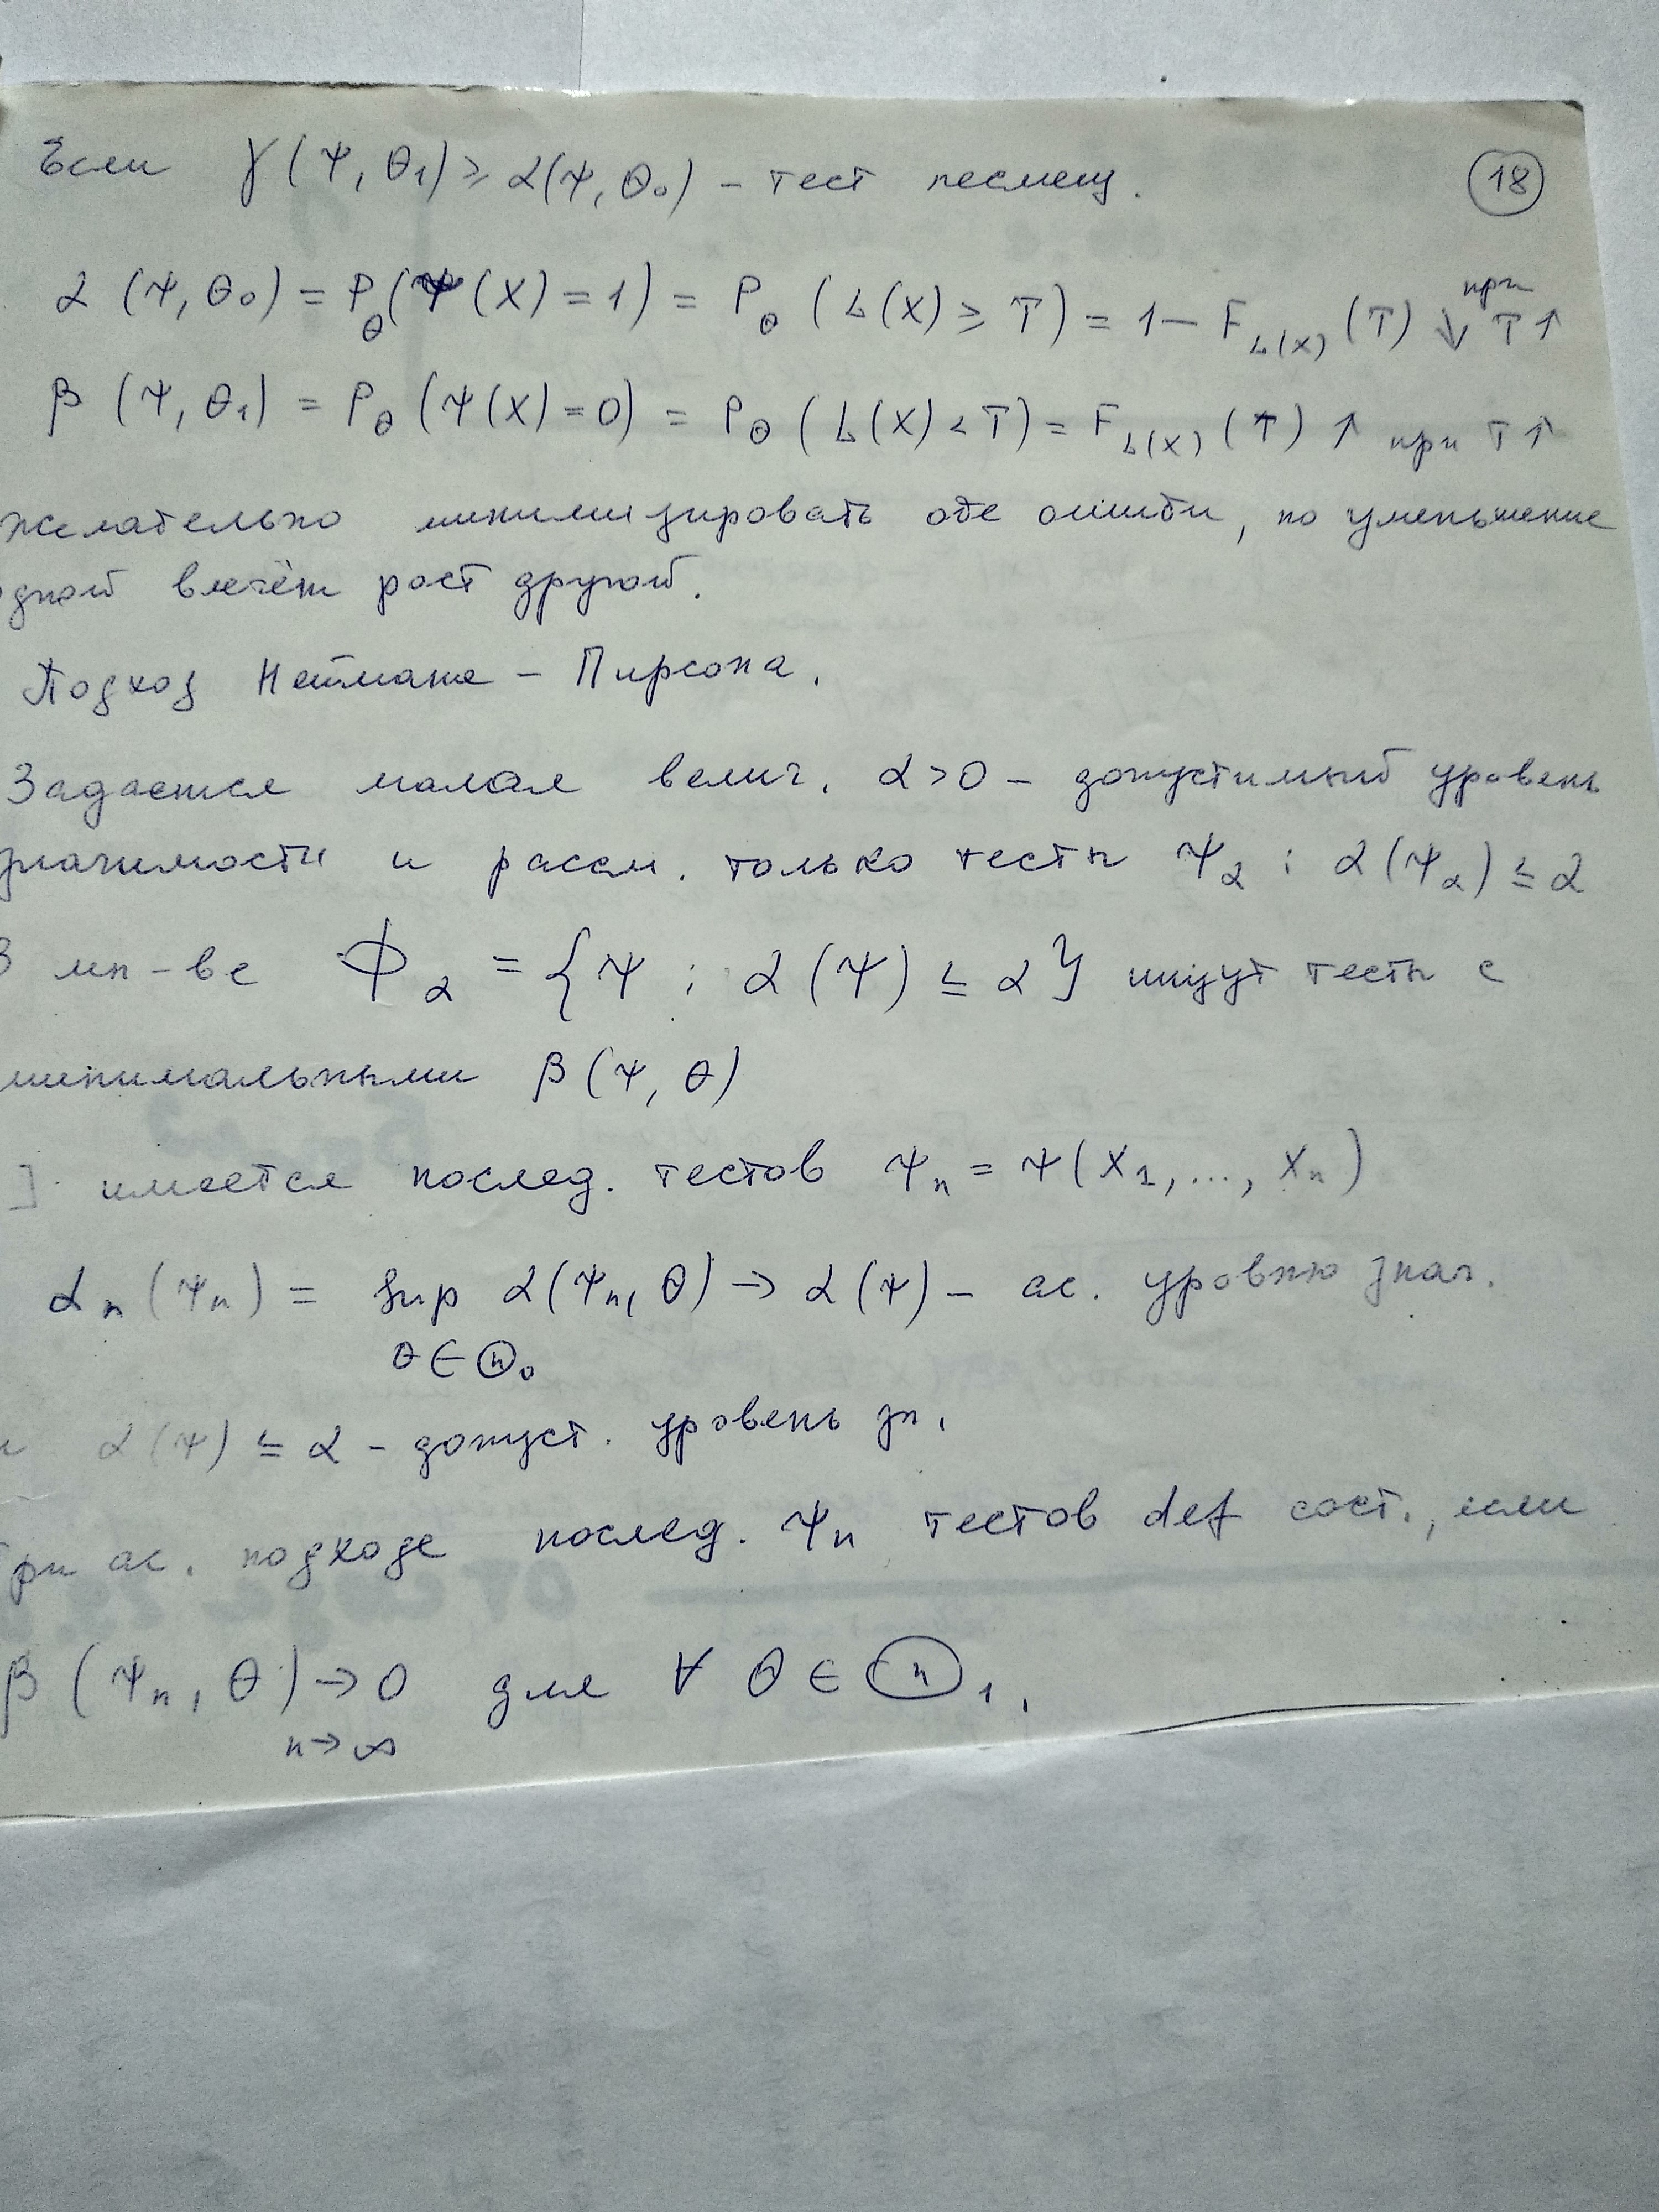 Если γ(Ψ, θ₁) ≥ α(Ψ, θ₀) – тест несмещ. 18
α (Ψ, θ₀) = P_θ(Ψ(X) = 1) = P_θ (L(X) ≥ T) = 1 – F_{L(X)} (T) ↓ при T↑
β (Ψ, θ₁) = P_θ (Ψ(X) = 0) = P_θ (L(X) < T) = F_{L(X)} (T) ↑ при T↑
желательно минимизировать обе ошибки, но уменьшение
дной влечёт рост другой.
Подход Неймана – Пирсона.
Задаётся малая велич. α > 0 – допустимый уровень
значимости и рассм. только тесты Ψ_α : α(Ψ_α) ≤ α
В мн-ве Φ_α = {Ψ : α(Ψ) ≤ α} ищут тесты с
минимальными β(Ψ, θ)
] имеется послед. тестов Ψₙ = Ψ(X₁, ..., Xₙ)
αₙ(Ψₙ) = sup α(Ψₙ, θ) → α(Ψ) – ас. уровню знач.
θ ∈ Θ₀
и α(Ψ) ≤ α – допуст. уровень зн.
При ас. подходе послед. Ψₙ тестов def сост., если
β (Ψₙ, θ) → 0 для ∀ θ ∈ Θ₁.
n → ∞